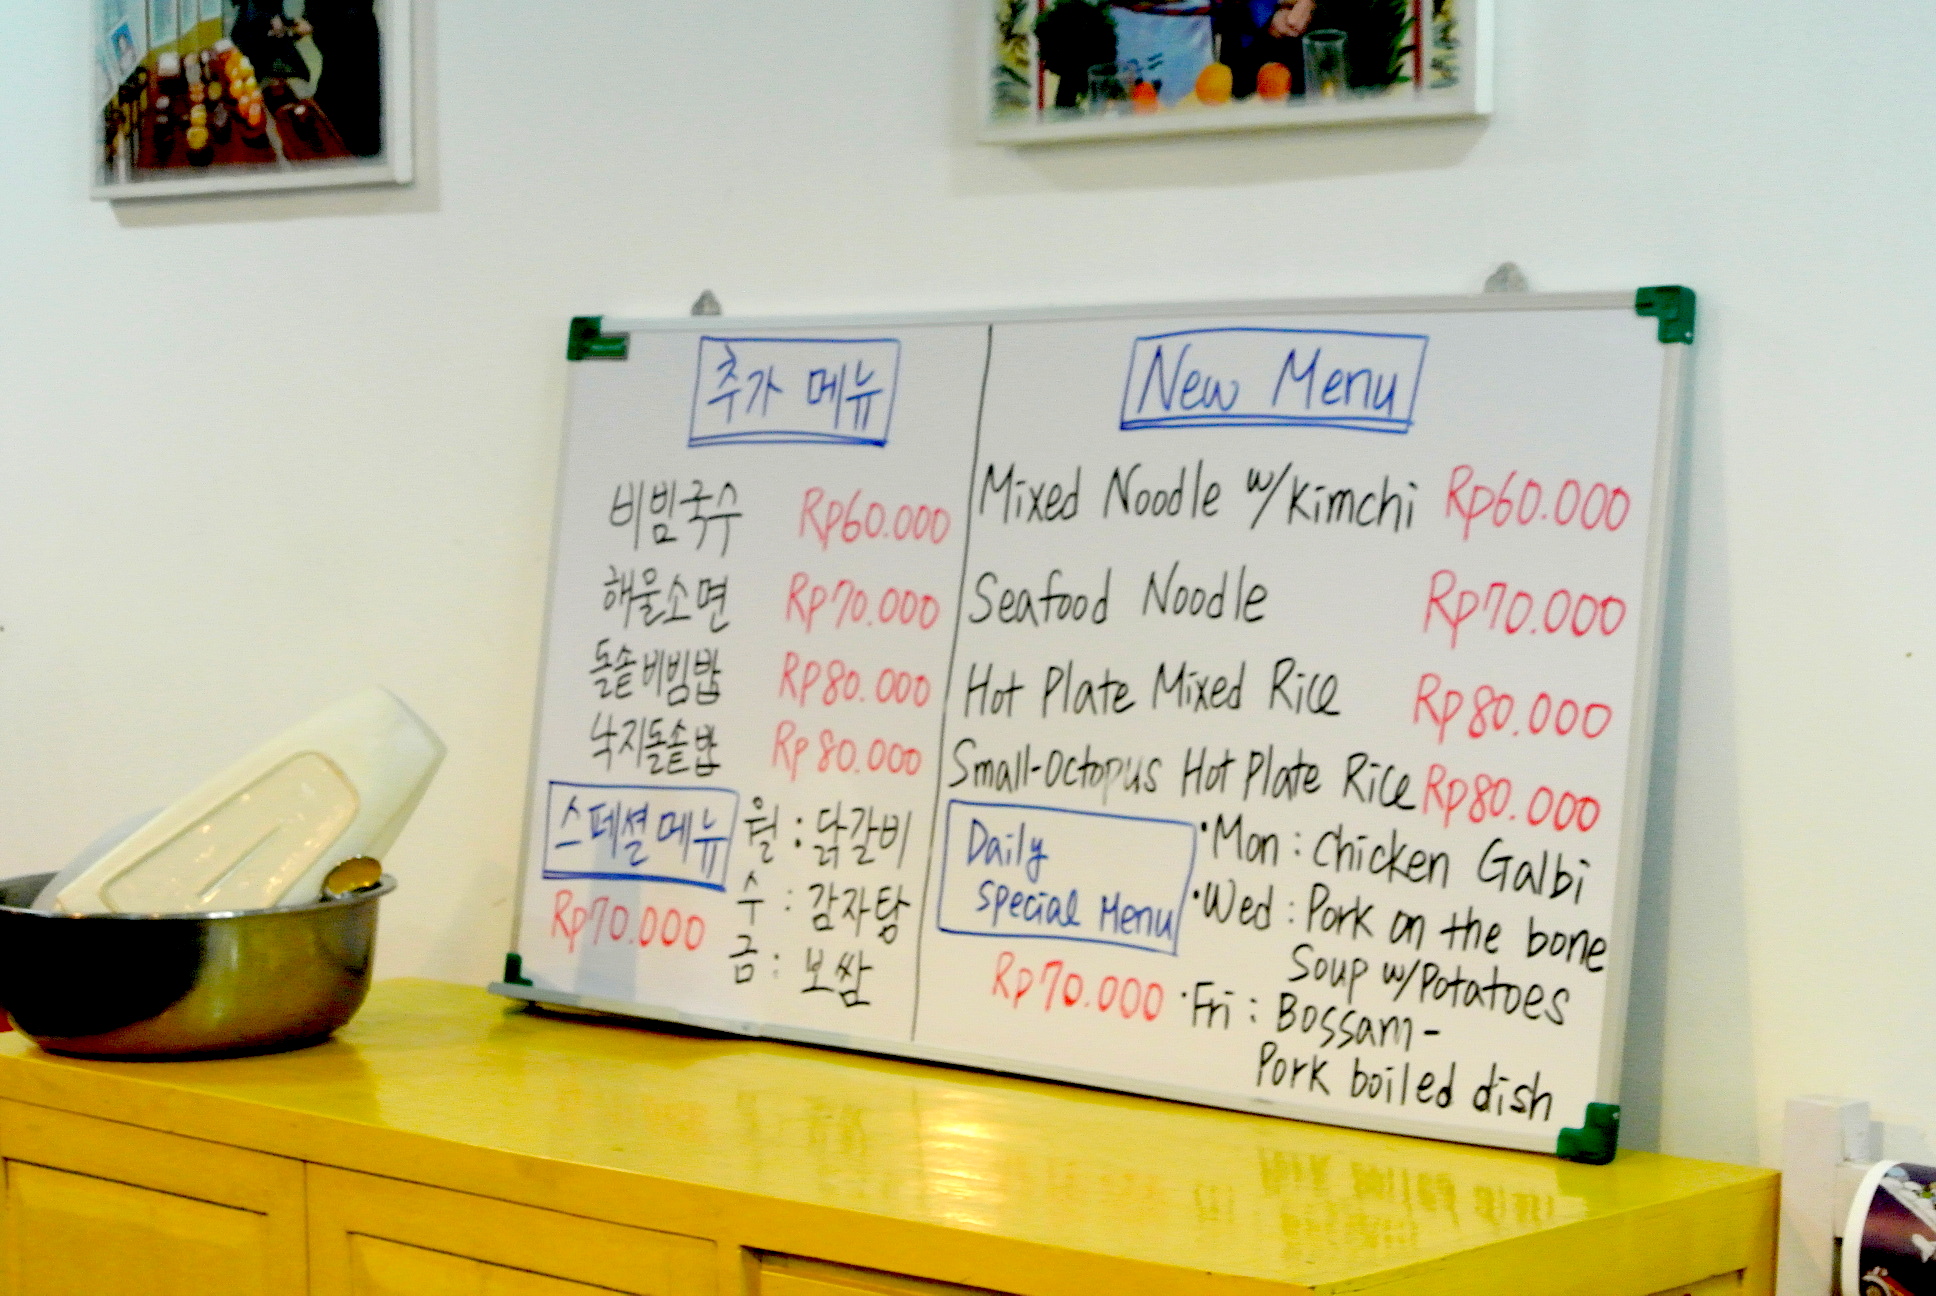 추가 메뉴
비빔국수 Rp60.000
해물소면 Rp70.000
돌솥비빔밥 Rp80.000
낙지돌솥밥 Rp80.000
스페셜메뉴
Rp70.000
월 : 닭갈비
수 : 감자탕
금 : 보쌈
New Menu
Mixed Noodle w/Kimchi Rp60.000
Seafood Noodle Rp70.000
Hot Plate Mixed Rice Rp80.000
Small-Octopus Hot Plate Rice Rp80.000
Daily
Special Menu
Rp70.000
·Mon : Chicken Galbi
·Wed : Pork on the bone
Soup w/Potatoes
·Fri : Bossam-
Pork boiled dish